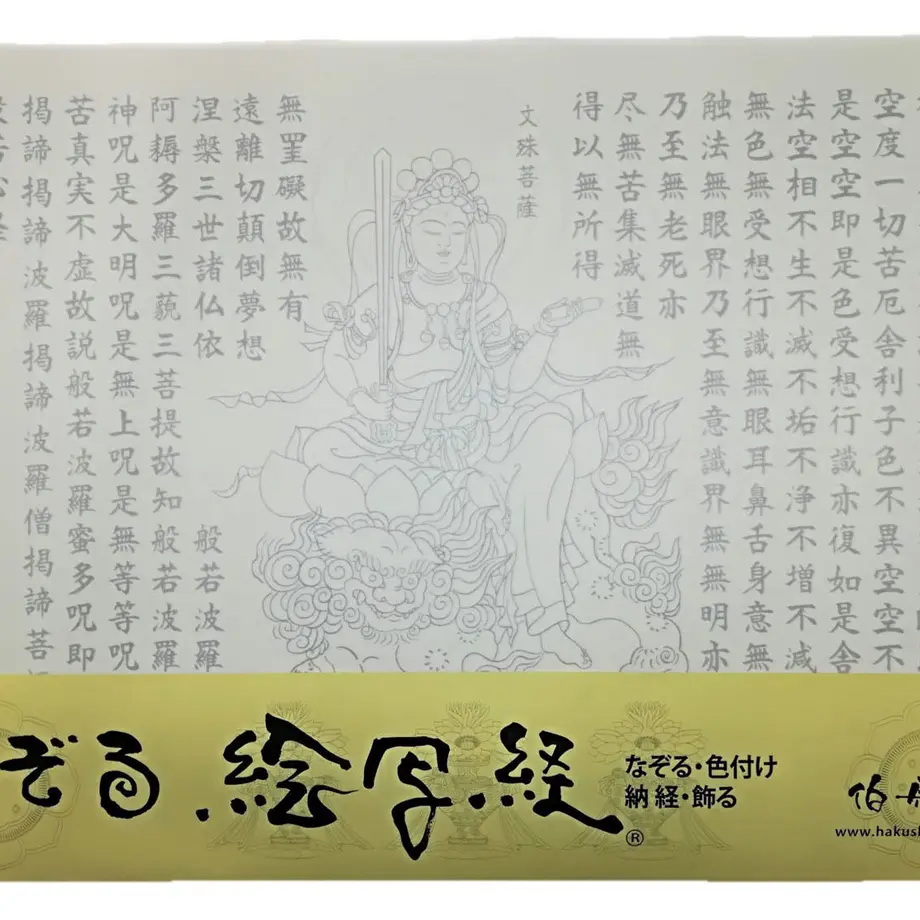 空度一切苦厄舎利子色不異空空不
是空空即是色受想行識亦復如是舎
法空相不生不滅不垢不浄不増不減
無色無受想行識無眼耳鼻舌身意無
触法無眼界乃至無意識界無無明亦
乃至無老死亦
尽無苦集滅道無
得以無所得
文殊菩薩
無罣礙故無有
遠離切顛倒夢想
涅槃三世諸仏依
般若波羅
阿耨多羅三藐三菩提故知般若波羅
神呪是大明呪是無上呪是無等等呪
苦真実不虚故説般若波羅蜜多呪即
掲諦掲諦波羅掲諦波羅僧掲諦菩
ぞる 絵写経®
なぞる・色付け
納経・飾る
伯
www.hakus